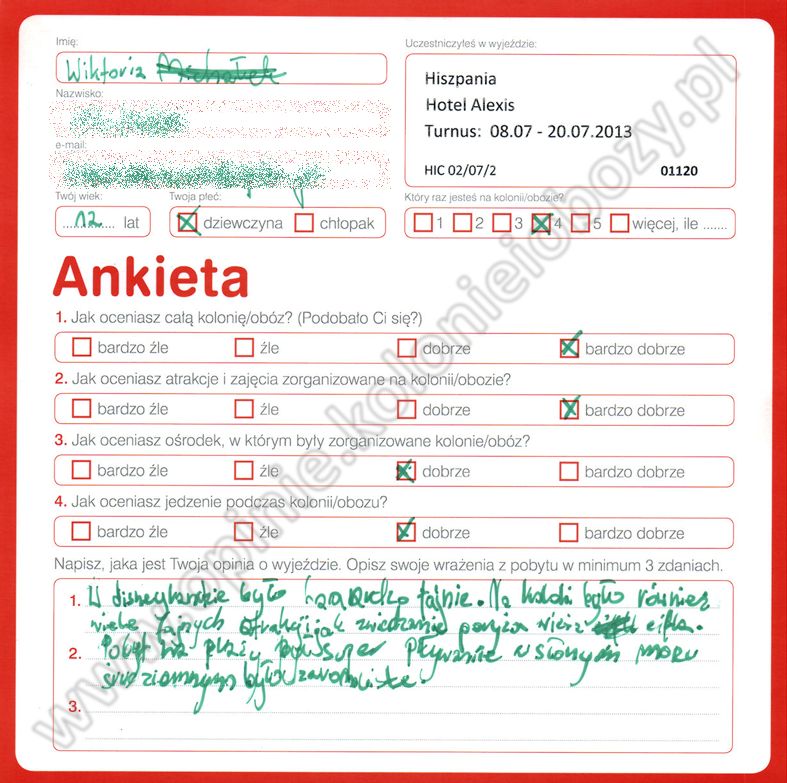 Imię:
Uczestniczyłeś w wyjeździe:
Wiktoria
Hiszpania
Hotel Alexis
Turnus: 08.07 - 20.07.2013
HIC 02/07/2 01120
Nazwisko:
e-mail:
Twój wiek: Twoja płeć: Który raz jesteś na kolonii/obozie?
12 lat dziewczyna chłopak 1 2 3 4 5 więcej, ile .......
Ankieta
1. Jak oceniasz całą kolonię/obóz? (Podobało Ci się?)
bardzo źle źle dobrze bardzo dobrze
2. Jak oceniasz atrakcje i zajęcia zorganizowane na kolonii/obozie?
bardzo źle źle dobrze bardzo dobrze
3. Jak oceniasz ośrodek, w którym były zorganizowane kolonie/obóz?
bardzo źle źle dobrze bardzo dobrze
4. Jak oceniasz jedzenie podczas kolonii/obozu?
bardzo źle źle dobrze bardzo dobrze
Napisz, jaka jest Twoja opinia o wyjeździe. Opisz swoje wrażenia z pobytu w minimum 3 zdaniach.
1. W disneylandzie było fajnie. Na było również
wiele atrakcji jak zwiedzanie
2. Pobyt na plaży super pływanie w słonym morzu
było
3.
www.opinie.kolonieiobozy.pl